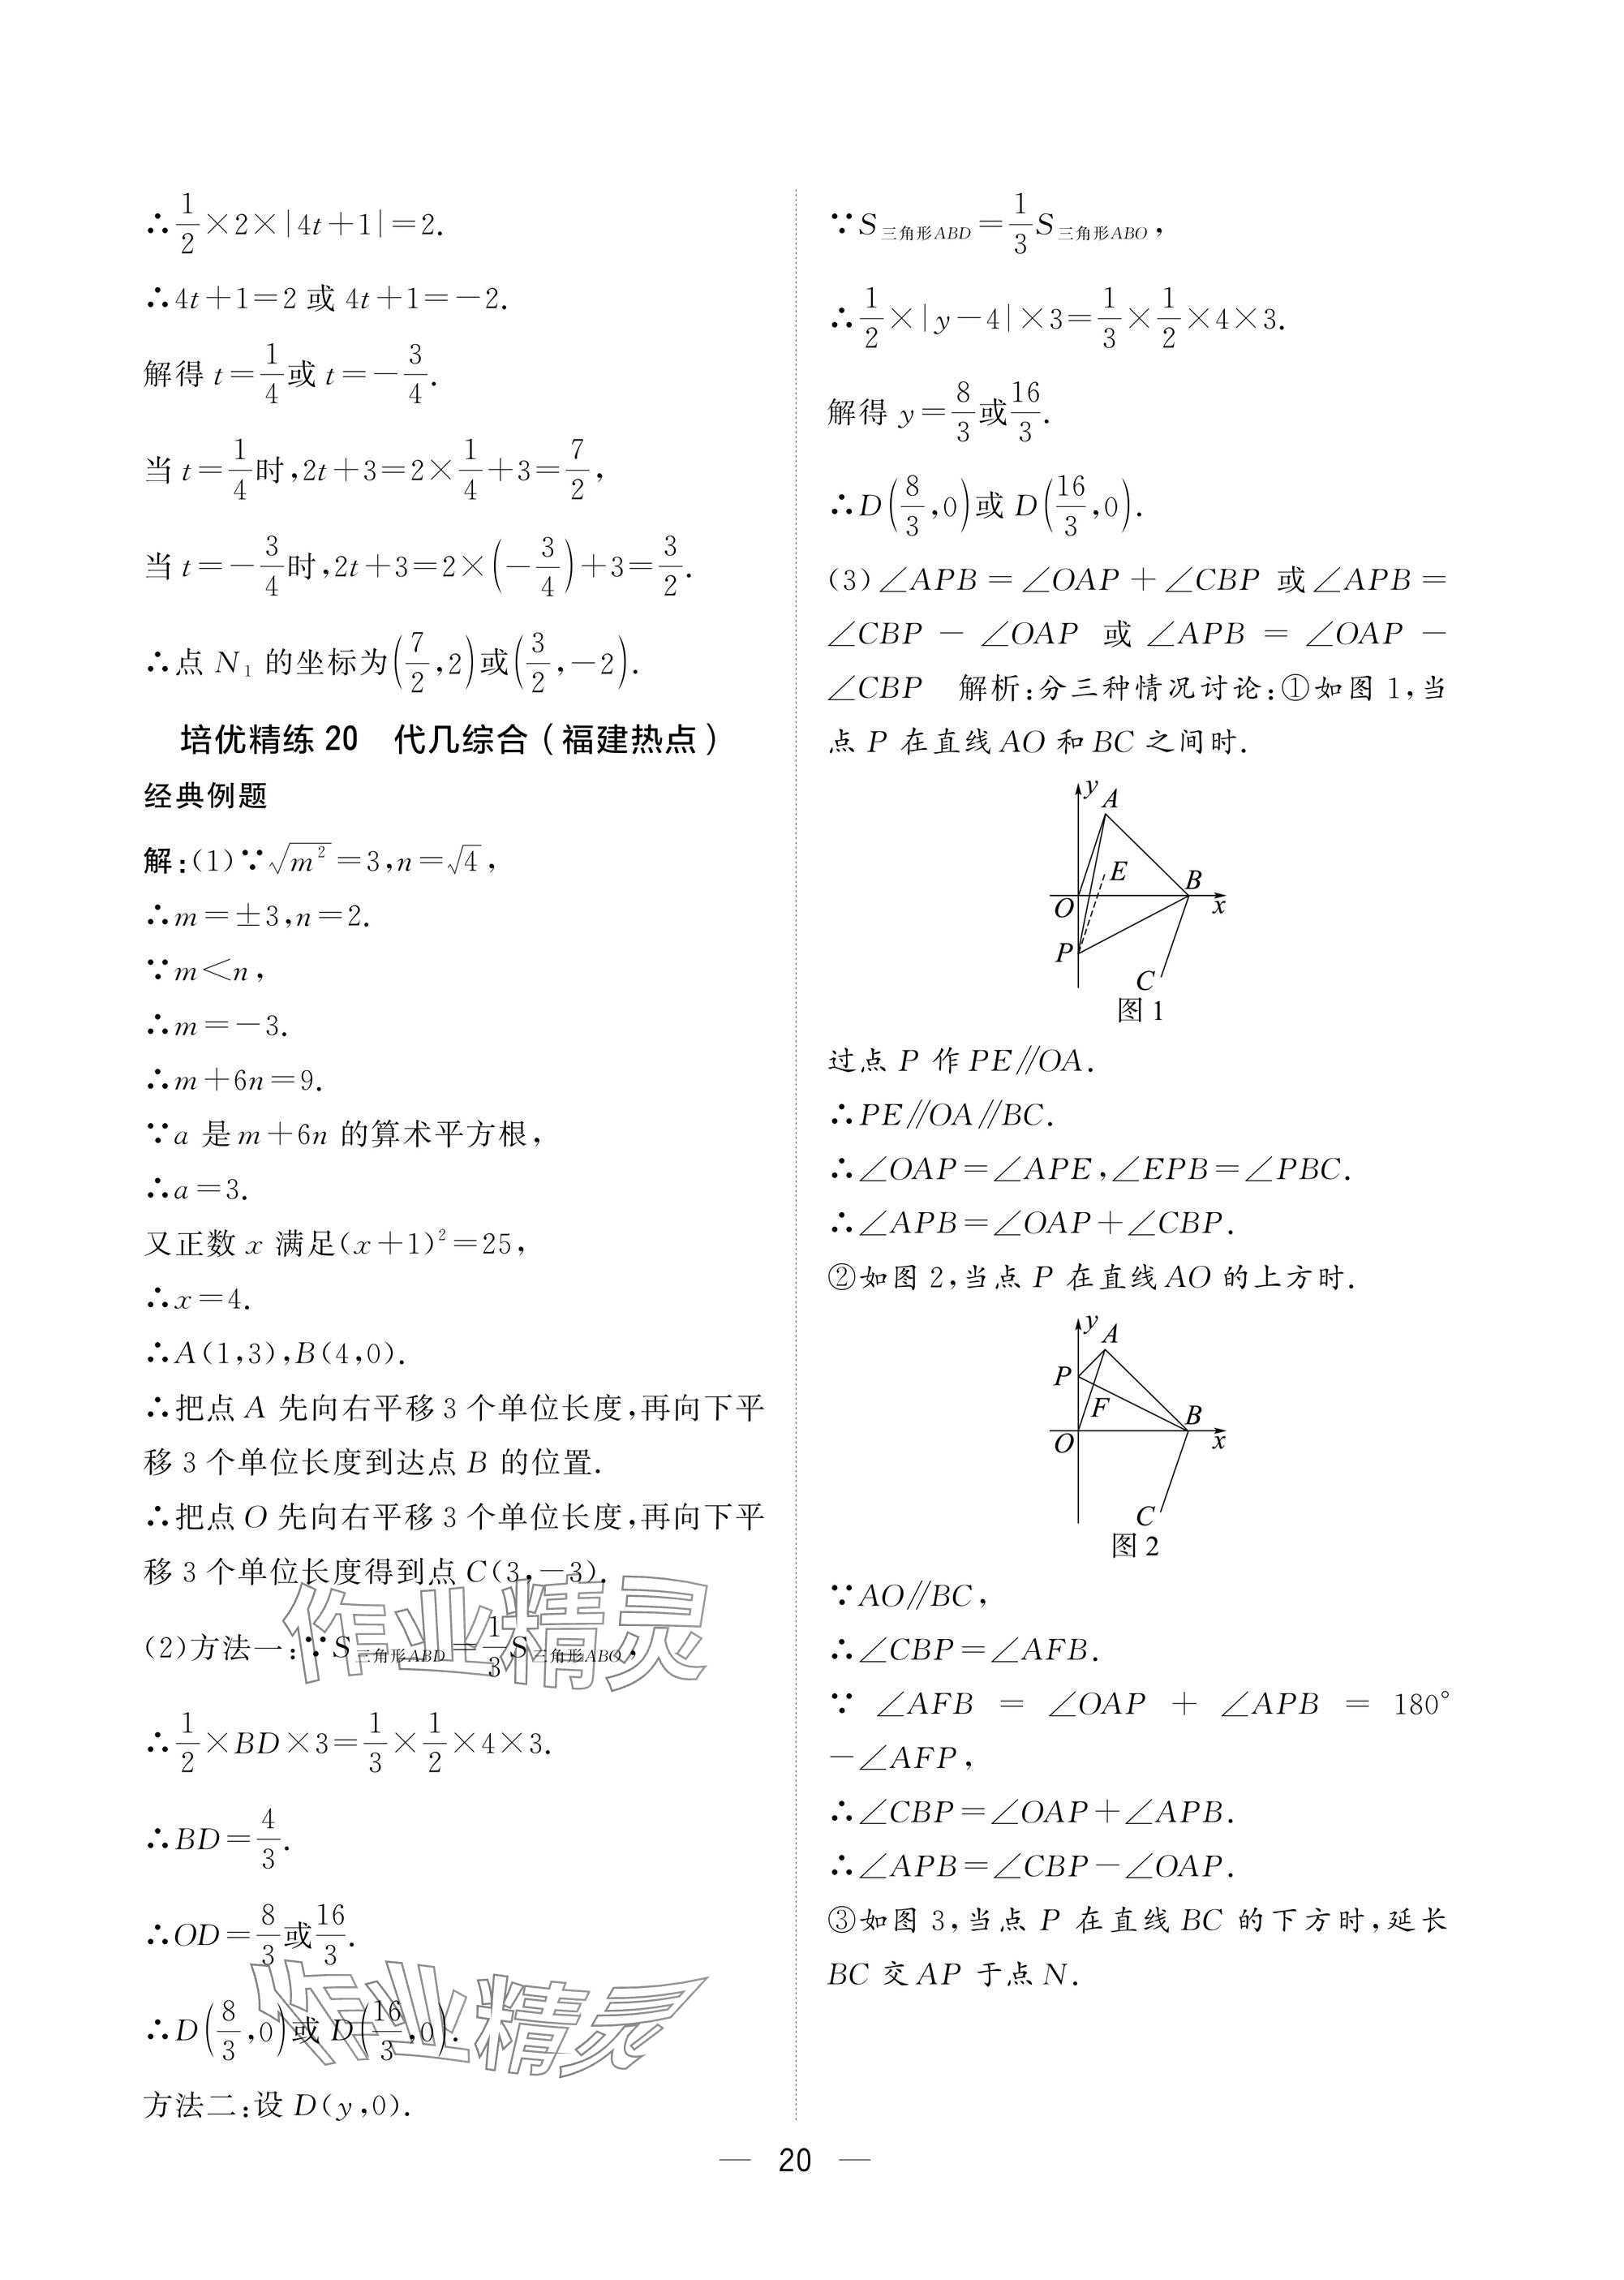 ∴1/2×2×|4t+1|=2.
∴4t+1=2 或 4t+1=-2.
解得 t=1/4或 t=-3/4.
当 t=1/4时,2t+3=2×1/4+3=7/2,
当 t=-3/4时,2t+3=2×(-3/4)+3=3/2.
∴点 N₁ 的坐标为(7/2,2)或(3/2,-2).
培优精练 20　代几综合(福建热点)
经典例题
解:(1)∵√m²=3,n=√4,
∴m=±3,n=2.
∵m<n,
∴m=-3.
∴m+6n=9.
∵a 是 m+6n 的算术平方根,
∴a=3.
又正数 x 满足(x+1)²=25,
∴x=4.
∴A(1,3),B(4,0).
∴把点 A 先向右平移 3 个单位长度,再向下平
移 3 个单位长度到达点 B 的位置.
∴把点 O 先向右平移 3 个单位长度,再向下平
移 3 个单位长度得到点 C(3,-3).
(2)方法一:∵S三角形ABD=1/3S三角形ABO,
∴1/2×BD×3=1/3×1/2×4×3.
∴BD=4/3.
∴OD=8/3或16/3.
∴D(8/3,0)或 D(16/3,0).
方法二:设 D(y,0).
∵S三角形ABD=1/3S三角形ABO,
∴1/2×|y-4|×3=1/3×1/2×4×3.
解得 y=8/3或16/3.
∴D(8/3,0)或 D(16/3,0).
(3)∠APB=∠OAP+∠CBP 或∠APB=
∠CBP-∠OAP 或∠APB=∠OAP-
∠CBP　解析:分三种情况讨论:①如图 1,当
点 P 在直线 AO 和 BC 之间时.
y
A
E
B
O
x
P
C
图 1
过点 P 作 PE∥OA.
∴PE∥OA∥BC.
∴∠OAP=∠APE,∠EPB=∠PBC.
∴∠APB=∠OAP+∠CBP.
②如图 2,当点 P 在直线 AO 的上方时.
y
A
P
F
B
O
x
C
图 2
∵AO∥BC,
∴∠CBP=∠AFB.
∵∠AFB=∠OAP+∠APB=180°
-∠AFP,
∴∠CBP=∠OAP+∠APB.
∴∠APB=∠CBP-∠OAP.
③如图 3,当点 P 在直线 BC 的下方时,延长
BC 交 AP 于点 N.
作业精灵
作业精灵
— 20 —